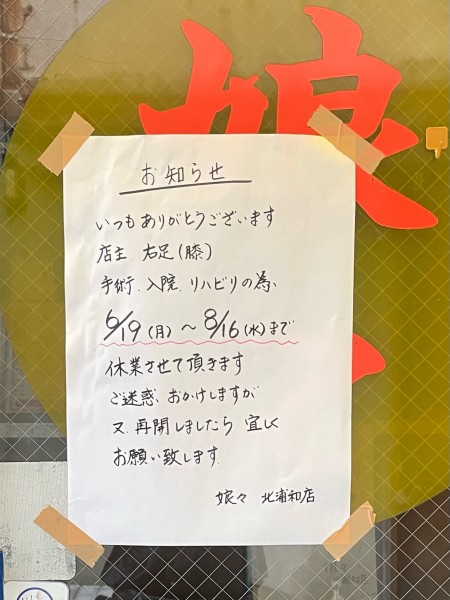 お知らせ
いつもありがとうございます
店主 右足(膝)
手術、入院、リハビリの為、
6/19(月)〜8/16(水)まで
休業させて頂きます
ご迷惑、おかけしますが
又、再開しましたら 宜しく
お願い致します。
娘々 北浦和店
娘